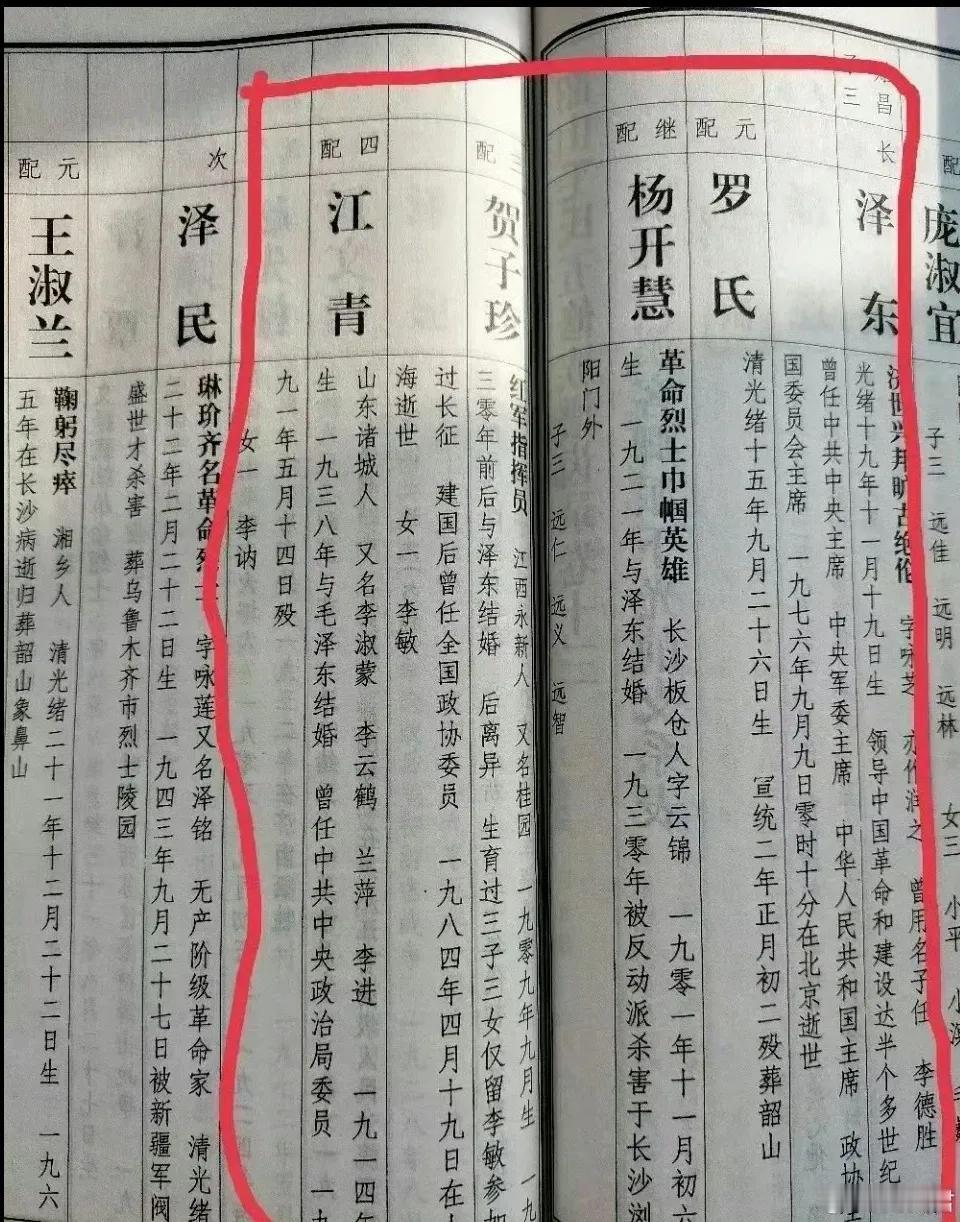 配
庞淑宜
子三 远佳 远明 远林 女三 小平
子三
长
泽东
济世兴邦旷古绝伦 字咏芝 亦作润之 曾用名子任 李德胜
光绪十九年十一月十九日生 领导中国革命和建设达半个多世纪
曾任中共中央主席 中央军委主席 中华人民共和国主席 政协
国委员会主席 一九七六年九月九日零时十分在北京逝世
元配
罗氏
清光绪十五年九月二十六日生 宣统二年正月初二殁葬韶山
继配
杨开慧
革命烈士巾帼英雄 长沙板仓人字云锦 一九零一年十一月初六
生 一九二一年与泽东结婚 一九三零年被反动派杀害于长沙浏
阳门外
子三 远仁 远义 远智
三配
贺子珍
红军指挥员 江西永新人 又名桂园 一九零九年九月生 一九
三零年前后与泽东结婚 后离异 生育过三子三女仅留李敏参加
过长征 建国后曾任全国政协委员 一九八四年四月十九日在上
海逝世 女一 李敏
四配
江青
山东诸城人 又名李淑蒙 李云鹤 兰萍 李进 一九一四年
生 一九三八年与毛泽东结婚 曾任中共中央政治局委员 一九
九一年五月十四日殁
女一 李讷
次
泽民
琳玠齐名革命烈士 字咏莲又名泽铭 无产阶级革命家 清光绪
二十二年二月二十二日生 一九四三年九月二十七日被新疆军阀
盛世才杀害 葬乌鲁木齐市烈士陵园
元配
王淑兰
鞠躬尽瘁 湘乡人 清光绪二十一年十二月二十二日生 一九六
五年在长沙病逝归葬韶山象鼻山